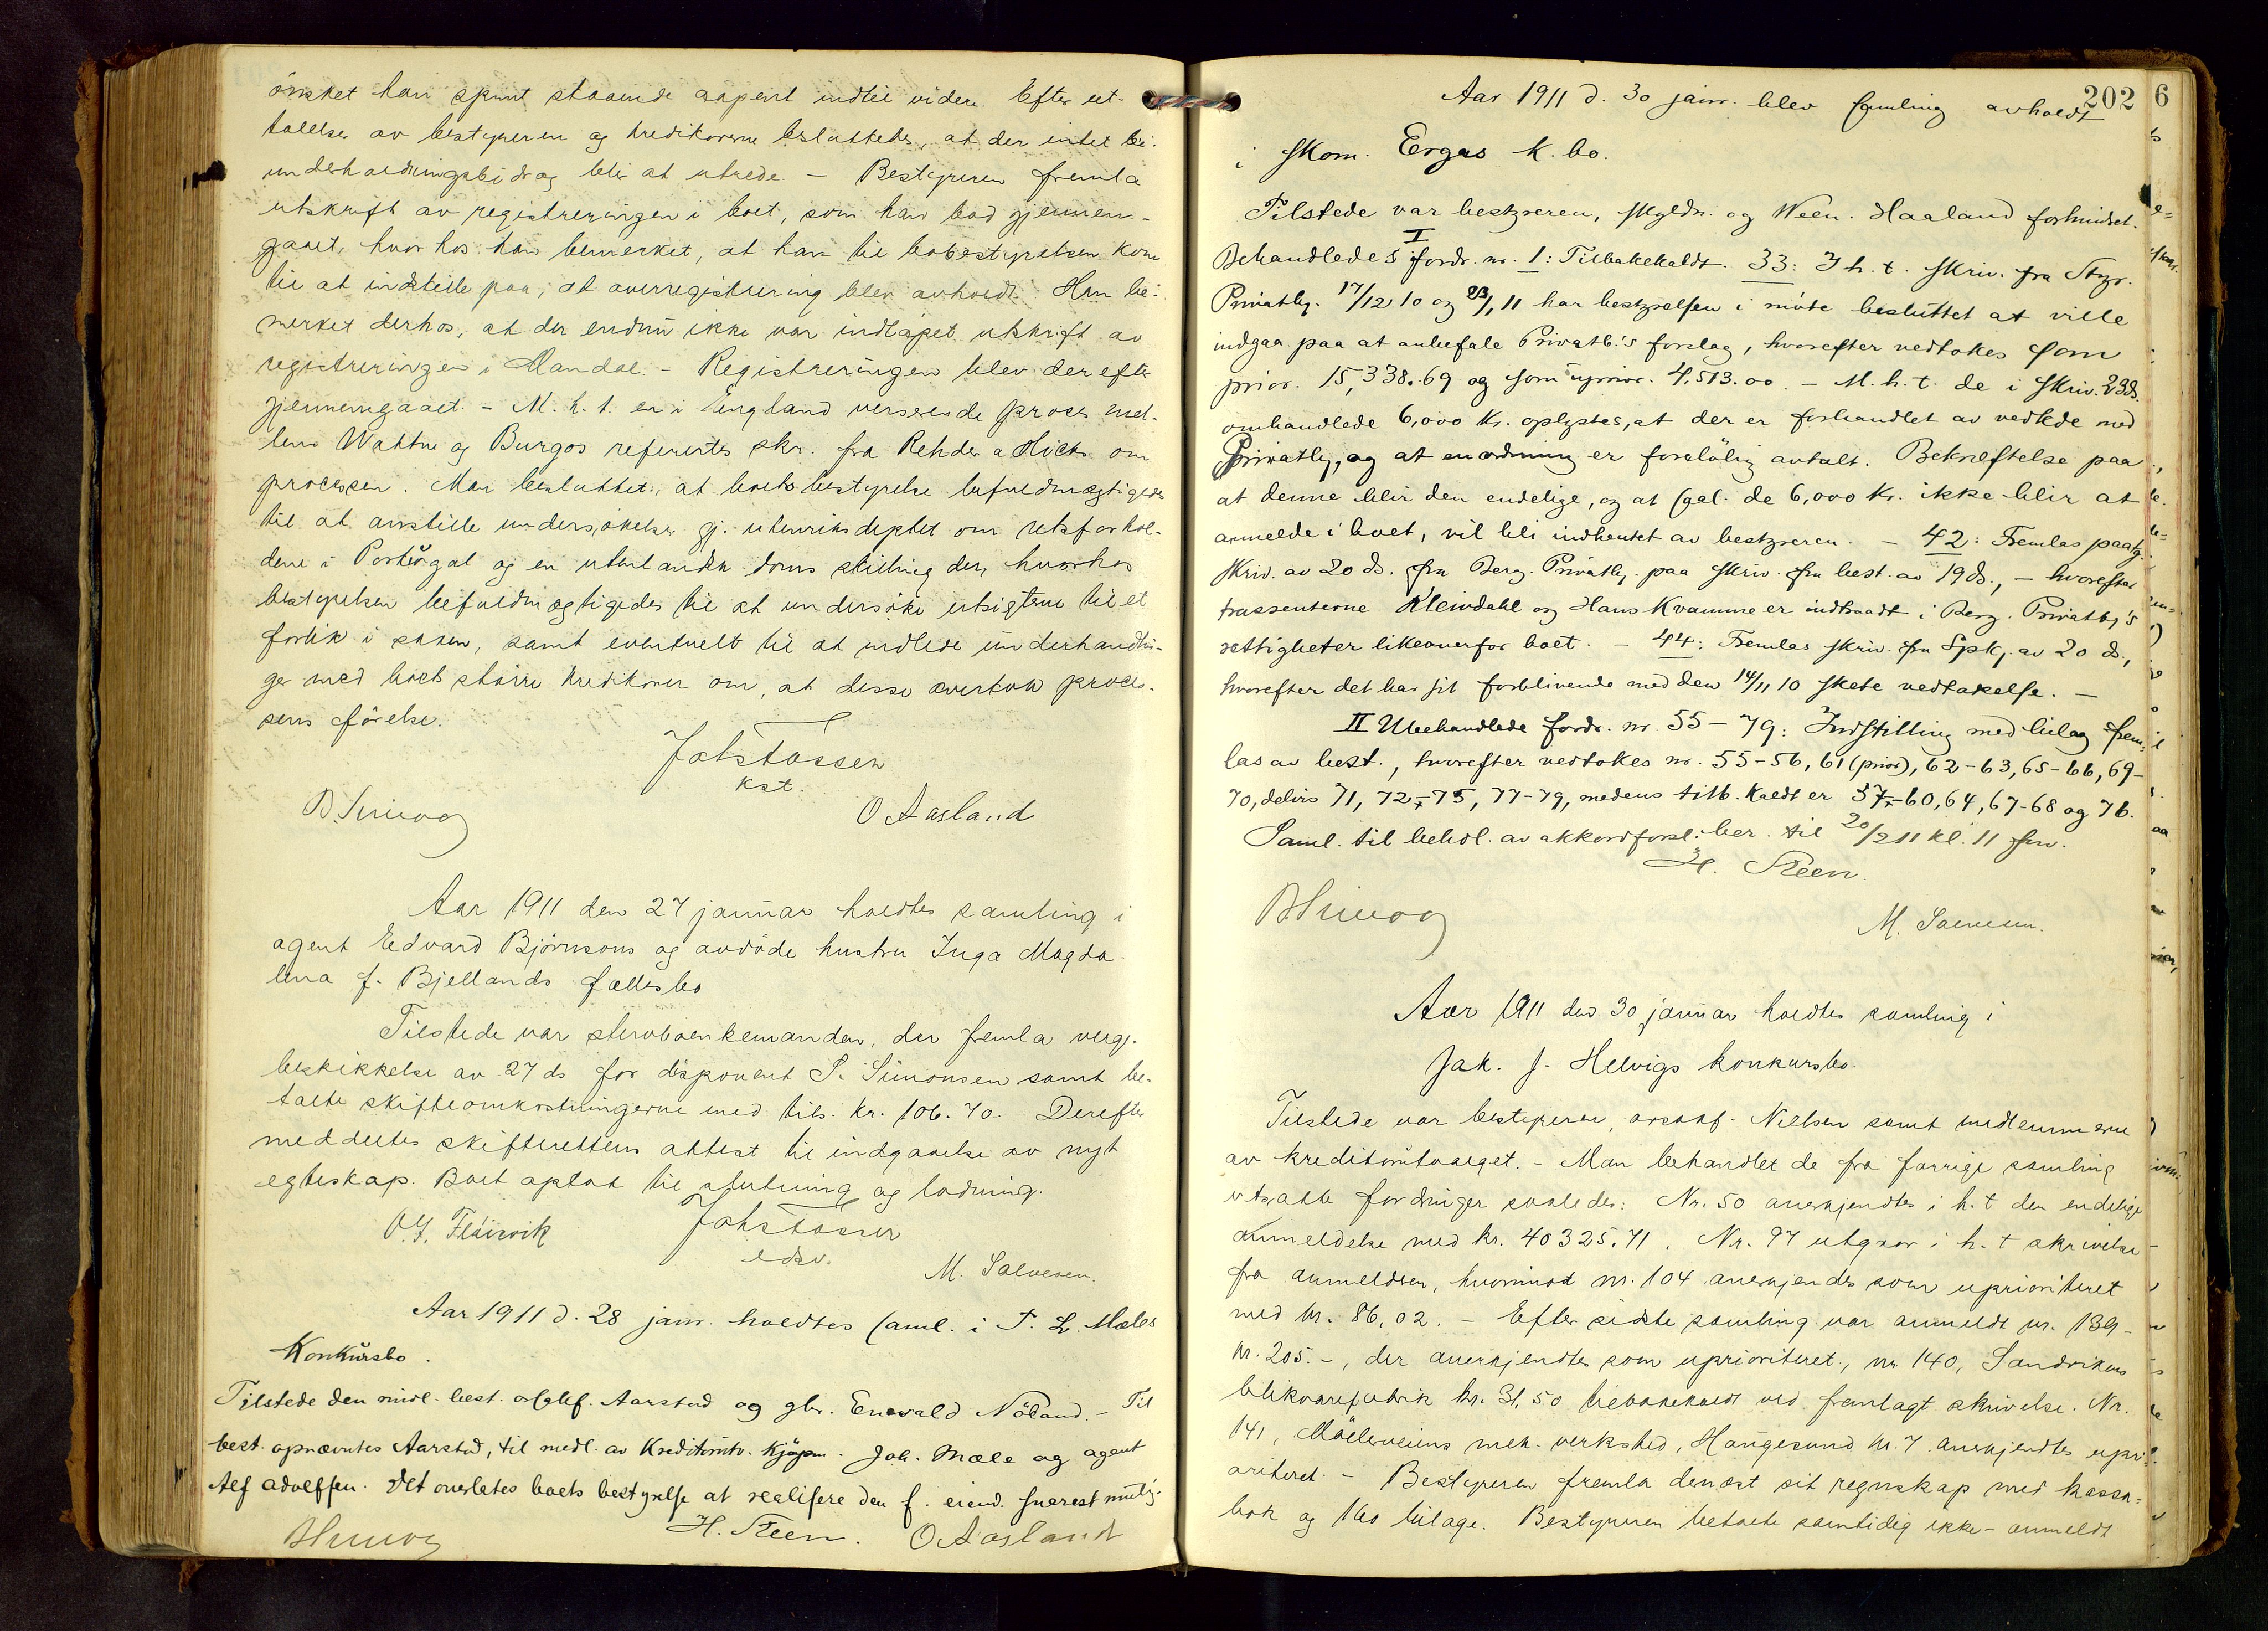 ønsket han spmt staaende aapent indtil videre. Efter ut-
talelse av bestyreren og kreditorerne besluttedes, at der intet bi-
underholdningsbidrag blir at utrede. - Bestyreren fremla
utskrift av registreringen i boet, som han bad gjennem-
gaaet, hvorhos han bemerket, at han til bobestyrelsen kom
til at indstille paa, at overregistrering blev avholdt. Han be-
merket derhos, at der endnu ikke var indløpet utskrift av
registreringen i Mandal. - Registreringen blev derefter
gjennemgaaet. - M. h. t. en i England verserende proces mel-
lem Wattne og Burgos refertes skr. fra Rehder a Hicks om
processen. Man besluttet, at boets bestyrelse befuldmægtigedes
til at anstille undersøkelse gj. utenriksdeptet om retsforhol-
dene i Portugal og en utenlandsk doms stilling der, hvorhos
bestyrelsen befuldmægtigedes til at undersøke utsigtene til et
forlik i saken, samt eventuelt til at indlede underhandlin-
ger med boets større kreditorer om, at disse overtok proces-
sens førelse.
Joh s Tossen
kst.
B. Sinoog
O Aasland
Aar 1911 den 27 januar holdtes samling i
agent Edvard Bjørnsons og avdøde hustru Inga Magda-
lena f. Bjellands fællesbo
Tilstede var sterboenkemanden, der fremla verge-
beskikkelse av 27 ds for disponent S. Simonsen samt be-
talte skifteomkostningerne med tils. kr. 106.70. Derefter
meddeltes skifterettens attest til indgaaelse av nyt
egteskap. Boet oplat til slutning og lodning.
O. J. Fladvik
Joh s Tossen
edsv.
M. Salvesen.
Aar 1911 d. 28 janr. holdtes saml. i T. L. Mæles
Konkursbo.
Tilstede den midl. best. o/sakf. Aarstad og gbr. Enevald Nöland. - Til
best. opnævntes Aarstad, til medl. av Kreditorutv. Kjøpm. Joh. Mæle og agent
Alf Adolfsen. Det overlates boets bestyrelse at realisere den f. eiend. snarest mulig.
H. Steen.
O Aasland
202
6
Aar 1911 d. 30 janr. blev samling avholdt
i skom. Ergas k. bo.
Tilstede var bestyreren, skyldn. og Ween. Haaland forhindret.
I
Behandledes fordr. nr. 1: Tilbakekaldt. 33: I h. t. skriv. fra Stgr.
Privatbk. 17/12 10 og 23/1 11 har bestyrelsen i møte besluttet at ville
indgaa paa at anbefale Privatb.'s forslag, hvorefter vedtokes som
prior. 15,338.69 og som uprior. 4,513.00. - M. h. t. de i skriv. 23 ds.
omhandlede 6,000 kr. oplystes, at der er forhandlet av vedkde med
Privatbk, og at en ordning er foreløbig avtalt. Bekræftelse paa
at denne blir den endelige, og at saal. de 6,000 kr. ikke blir at
anmelde i boet, vil bli indhentet av bestyreren. - 42: Fremlas paateg.
Skriv. av 20 ds. fra Berg. Privatbk. paa skriv. fra best. av 19 ds., - hvorefter
trassenterne Kleivdahl og Hans Kvamme er indtraadt i Berg. Privatbk's
rettigheter likeoverfor boet. - 44: Fremlas skriv. fra Spkj. av 20 ds.,
hvorefter det har sit forblivende med den 14/11 10 skete vedtakelse. -
II Ubehandlede fordr. nr. 55-79: Indstilling med bilag frem-
las av best., hvorefter vedtokes nr. 55-56, 61 (prior), 62-63, 65-66, 69-
70, delvis 71, 72-75, 77-79, medens tilb. kaldt er 57-60, 64, 67-68 og 76.
Saml. til behdl. av akkordforsl. ber. til 20/2 11 kl. 11 fm.
H. Steen.
M. Salvesen.
Aar 1911 den 30 januar holdtes samling i
Jak. J. Helvigs konkursbo.
Tilstede var bestyreren, orsakf. Nielsen samt medlemmerne
av kreditorutvalget. - Man behandlet de fra forrige samling
utsatte fordringer saaledes: Nr. 50 anerkjendtes i h. t den endelige
anmeldelse med kr. 40325.71. Nr. 97 utgaar i h. t skrivelse
fra anmelderen, hvorimot nr. 104 anerkjendes som uprioriteret
med kr. 86,02. - Efter sidste samling var anmeldt nr. 139 -
kr. 205.-, der anerkjendtes som uprioriteret, nr 140, Sandvikens
blikvarefabrik kr. 31,50 tilbakekaldt ved fremlagt skrivelse. Nr.
141, Mæleveiens mek. verksted, Haugesund kr. 7 anerkjendtes upri-
oriteret. - Bestyreren fremla dernæst sit regnskap med kassa-
bok og 160 bilage. Bestyreren betalte samtidig ikke-anmeldt